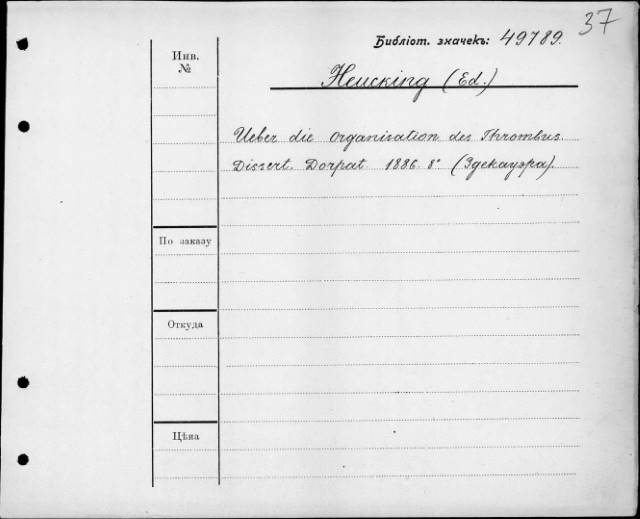 37
Библіот. значекъ: 49789.
Инв.
№
Heucking (Ed.)
Ueber die Organisation des Thrombus.
Dissert. Dorpat 1886. 8° (Здекауэра).
По заказу
Откуда
Цѣна